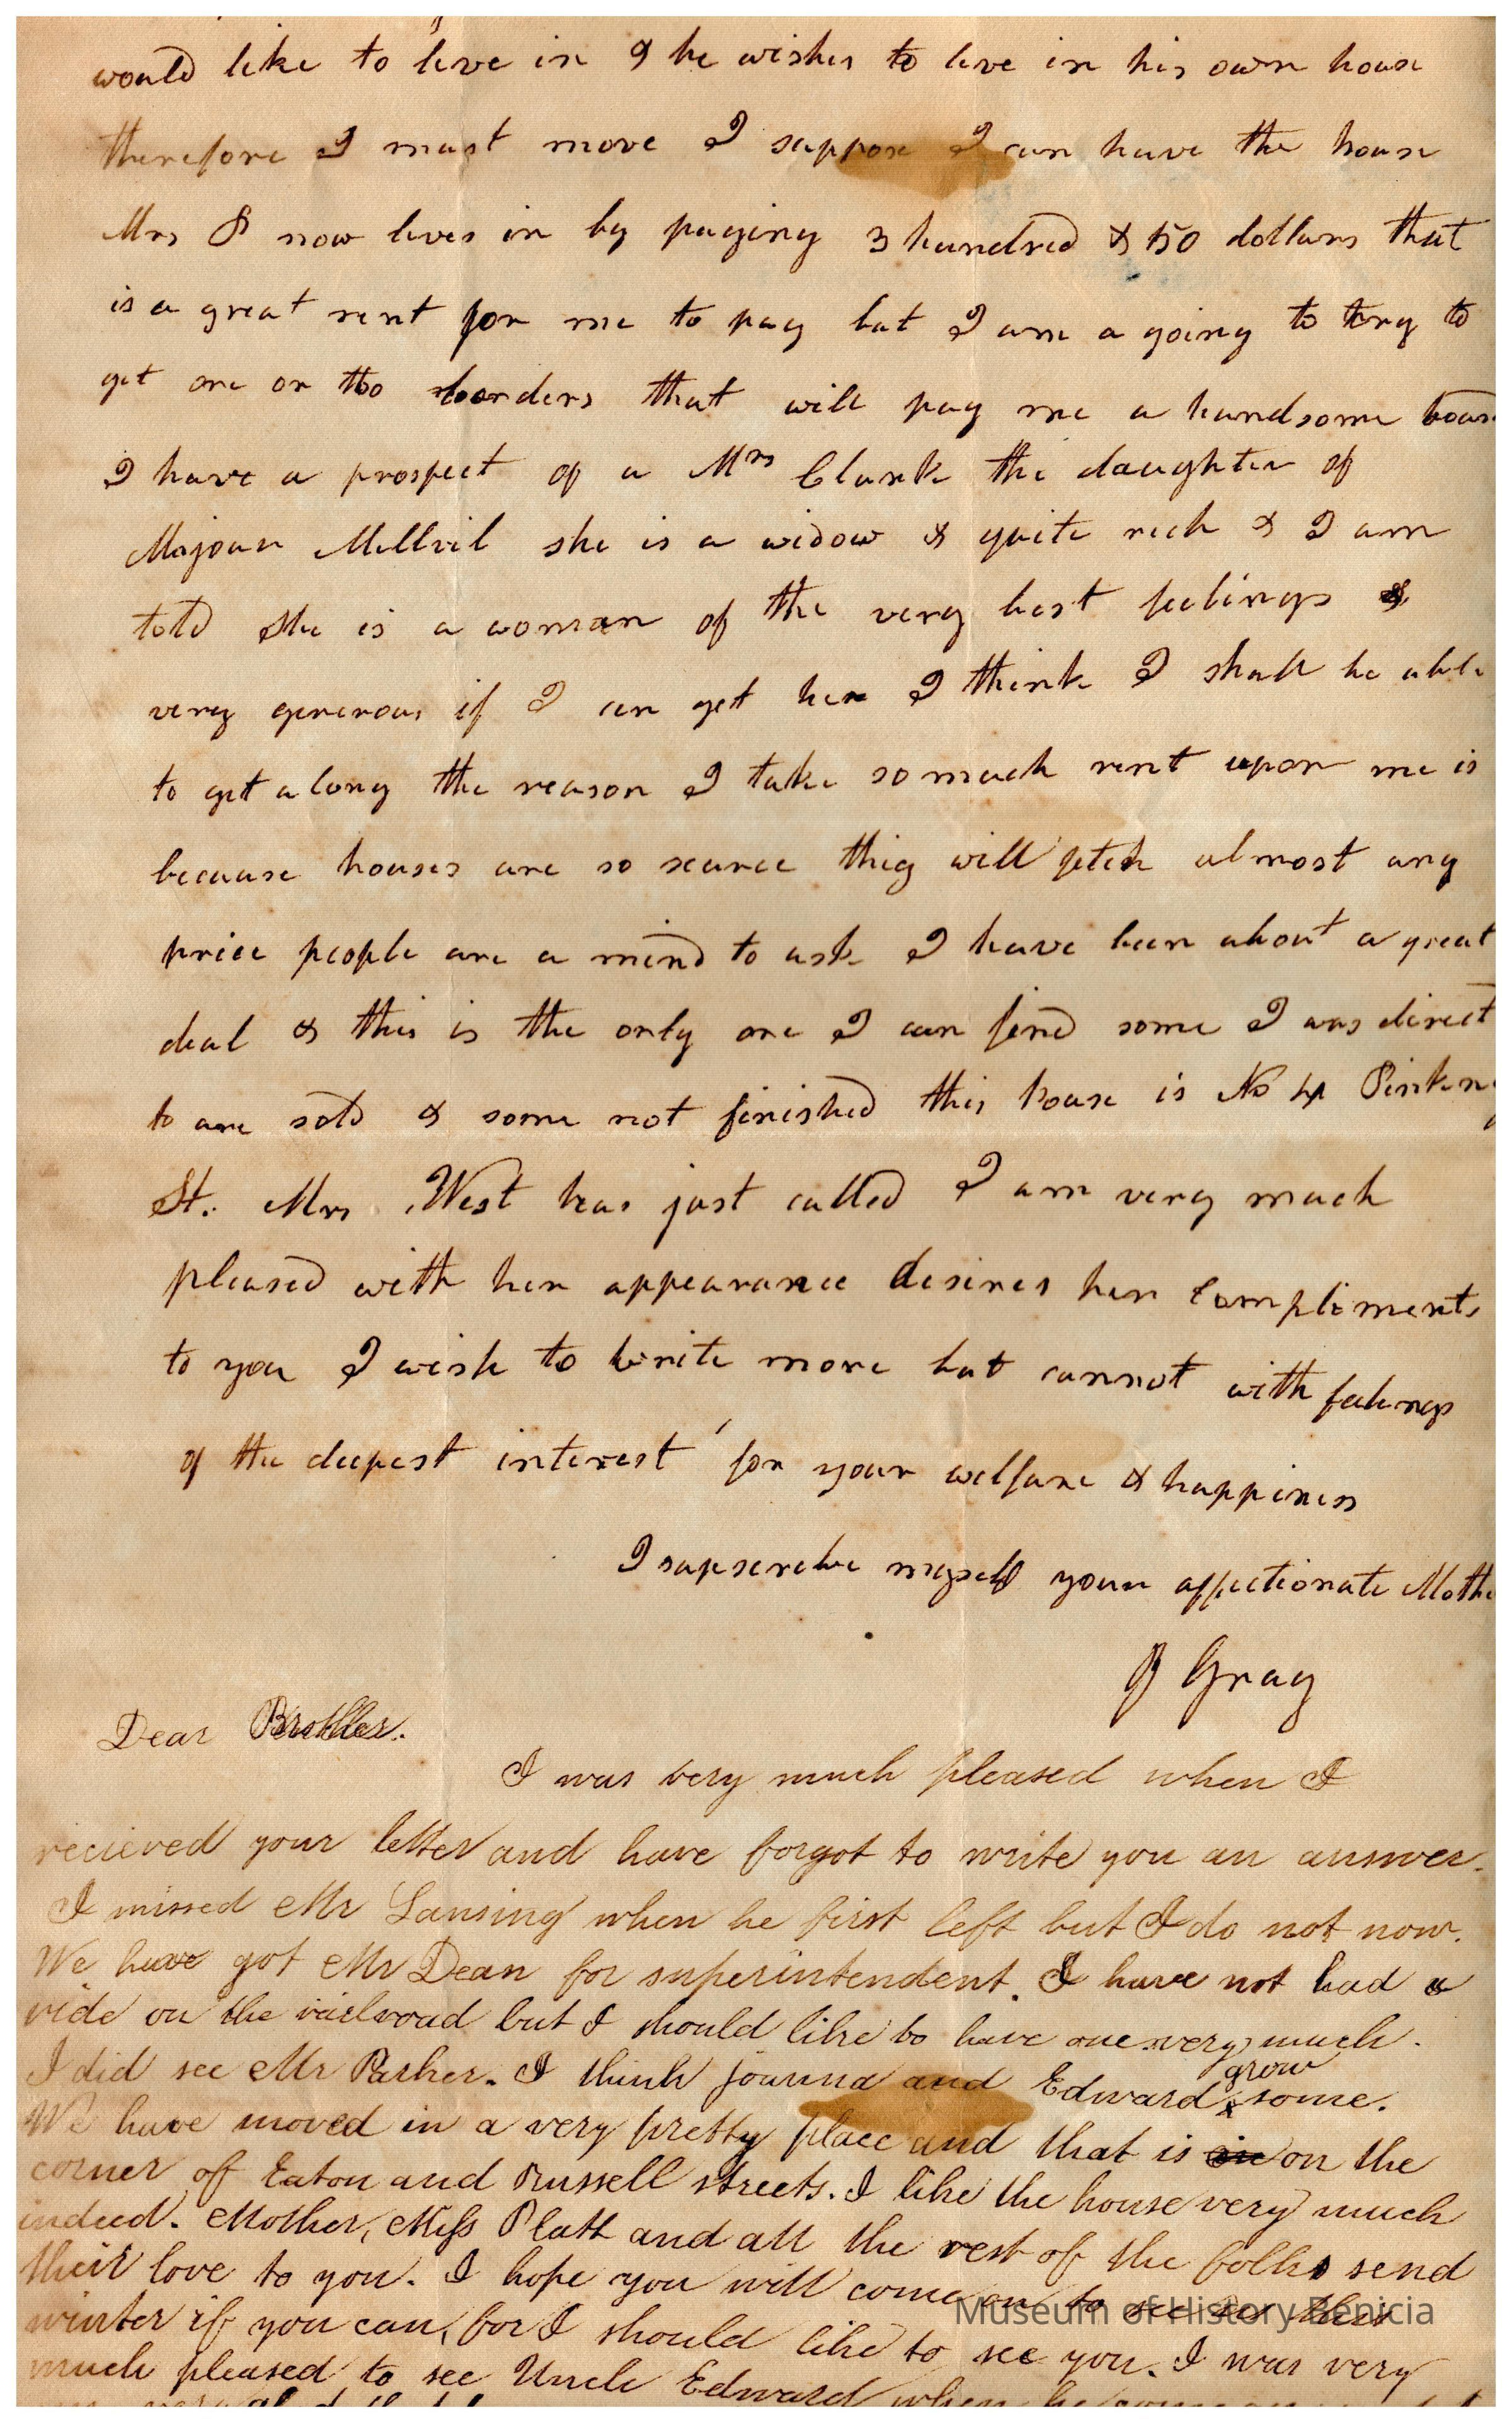 would like to live in & he wishes to live in his own house
therefore I must move I suppose I can have the house
Mrs P now lives in by paying 3 hundred & 50 dollars that
is a great rent for me to pay but I am a going to try to
get one or too borders that will pay me a handsome boar
I have a prospect of a Mrs Clark the daughter of
Majour Mellvil she is a widow & quite rich & I am
told she is a woman of the very best feelings &
very generous if I can get her I think I shall be able
to get along the reason I take so much rent upon me is
because houses are so scarce thiy will fetch almost any
price people are a mind to ask I have been about a great
deal & this is the only one I can find some I was direct
to are sold & some not finished this house is No 4 Pinkny
St. Mrs West has just called I am very much
pleased with her appearance desires her compliments
to you I wish to write more but cannot with feelings
of the deepest interest for your welfare & happiness
I supscribe myself your affectionate Mothe
P Gray
Dear Brother.
I was very much pleased when I
recieved your letter and have forgot to write you an answer.
I missed Mr Lansing when he first left but I do not now.
We have got Mr Dean for superintendent. I have not had a
ride on the railroad but I should like to have one very much.
I did see Mr Parker. I think joanna and Edward grow some.
We have moved in a very pretty place and that is in on the
corner of Eaton and Russell streets. I like the house very much
indeed. Mother, Miss Platt and all the rest of the folks send
their love to you. I hope you will come on to see us this
winter if you can, for I should like to see you. I was very
much pleased to see Uncle Edward when he
Museum of History Benicia